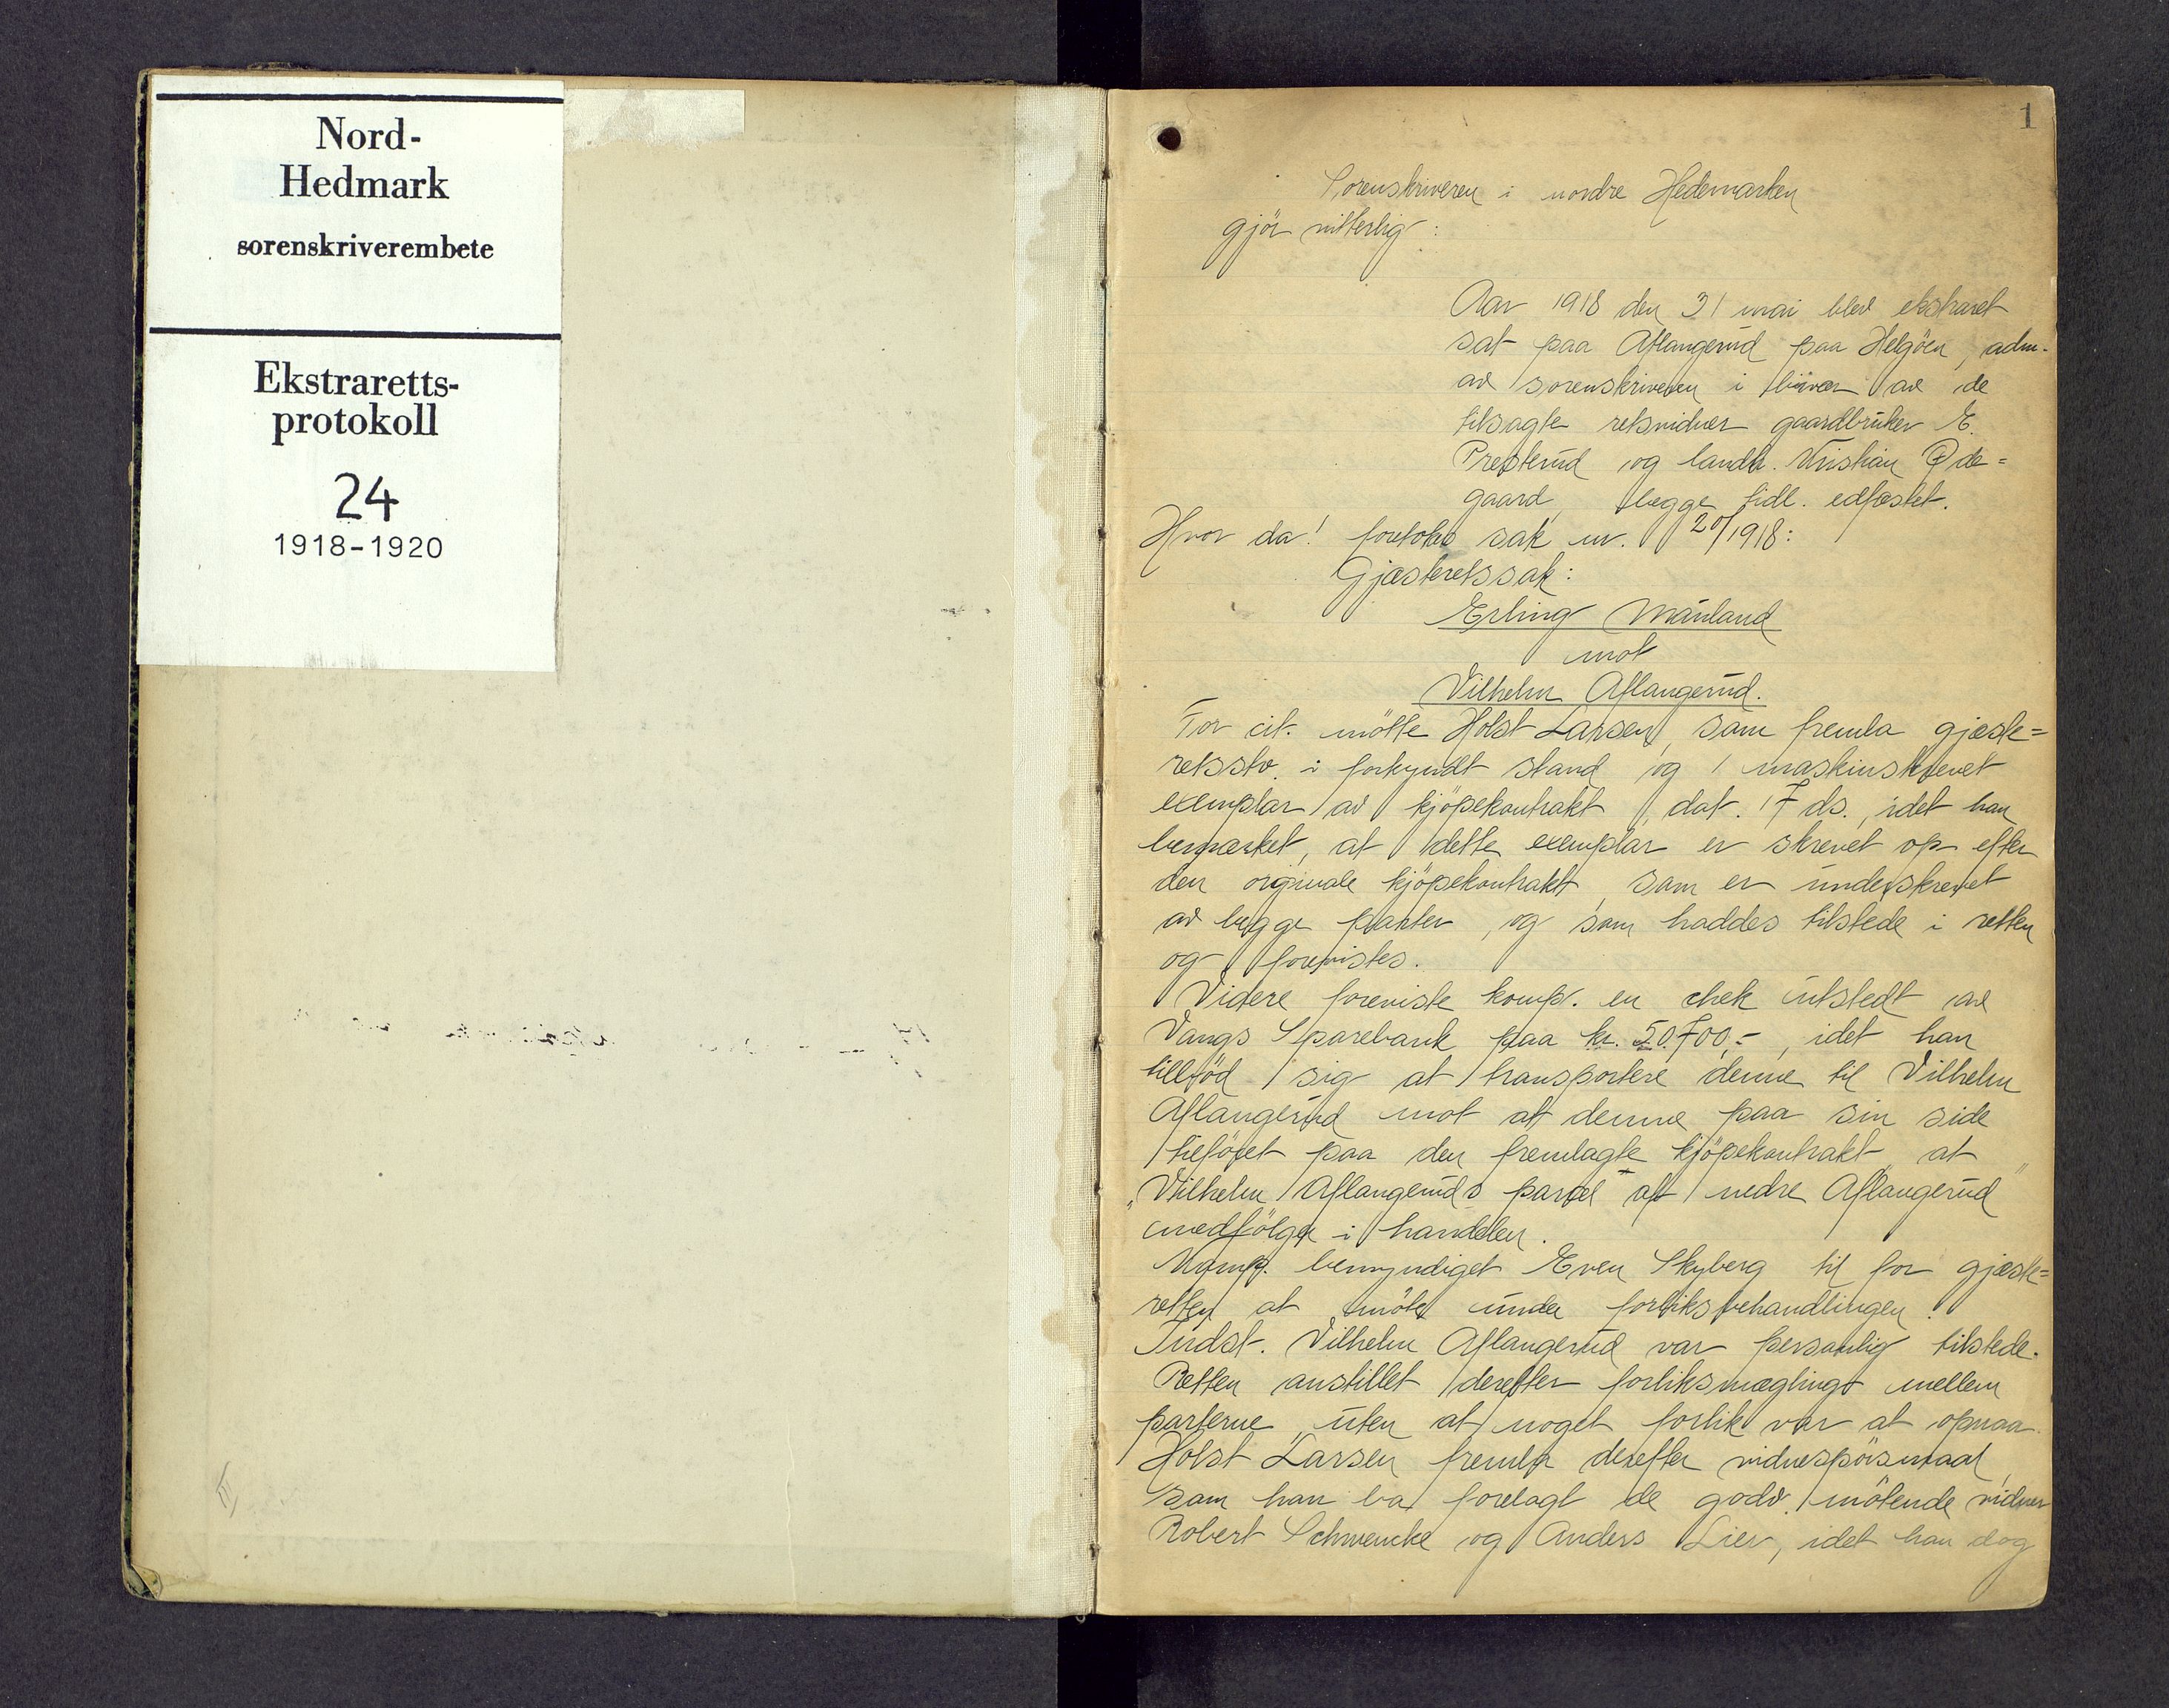 Nord-
Hedmark
sorenskriverembete
Ekstraretts-
protokoll
24
1918-1920
1
Sorenskriveren i nordre Hedemarken
gjör vitterlig:
Aar 1918 den 31 mai blev ekstraret
sat paa Aflangerud paa Helgöen, adm.
av sorenskriveren i tilvær av de
tilsagte retsvidner gaardbruker E.
Presterud og landh. Kristian Øde=
gaard, begge tidl. edfæstet.
Hvor da! foretokes sak nr. 20/1918:
Gjæsteretssak:
Erling Mæuland
mot
Vilhelm Aflangerud.
For cit. mötte Holst Larsen, som fremla gjæste=
retsstv. i forkyndt stand og 1 maskinskrevet
exemplar av kjöpekontrakt, dat. 17 ds., idet han
bemærket, at dette exemplar er skrevet op efter
den orginale kjöpekontrakt, som er underskrevet
av begge parter, og som haddes tilstede i retten
og forevistes.
Videre foreviste komp. en chek utstedt av
Vangs Sparebank paa kr. 50.700,-, idet han
tilböd sig at transportere denne til Vilhelm
Aflangerud mot at denne paa sin side
tilföiet paa den fremlagte kjöpekontrakt at
"Vilhelm Aflangeruds parcel af nedre Aflangerud"
medfölger i handelen.
Komp. bemyndiget Even Skyberg til for gjæste=
retten at möte under forliksbehandlingen.
Indst. Vilhelm Aflangerud var personlig tilstede.
Retten anstillet derefter forliksmægling mellem
parterne uten at noget forlik var at opnaa.
Holst Larsen fremla derefter vidnespörsmaal,
som han ba forelagt de godv. mötende vidner
Robert Schwencke og Anders Lier, idet han dog